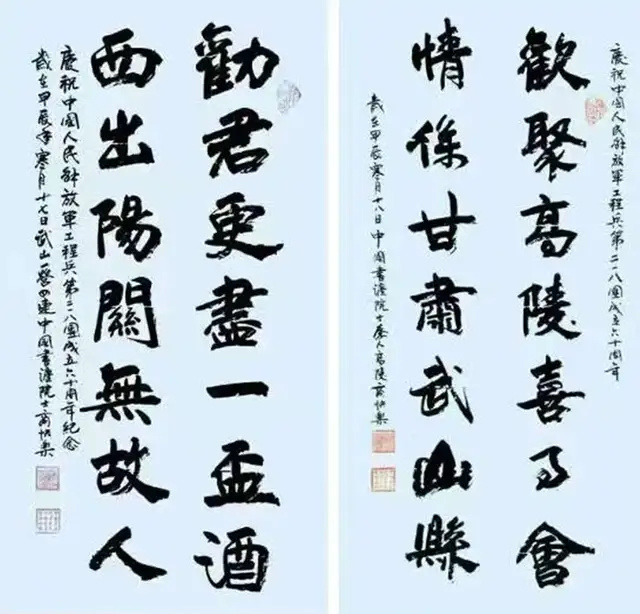 慶祝中国人民解放軍工程兵第二一八團成立六十周年
歡聚高陵喜會
情係甘肅武山縣
歲在甲辰寒月十八日中國書灋院士秦人高陵
勸君更盡一盃酒
西出陽關無故人
慶祝中国人民解放軍工程兵第二一八團成立六十周年紀念
歲在甲辰年寒月十七日武山一營四連中国書灋院士